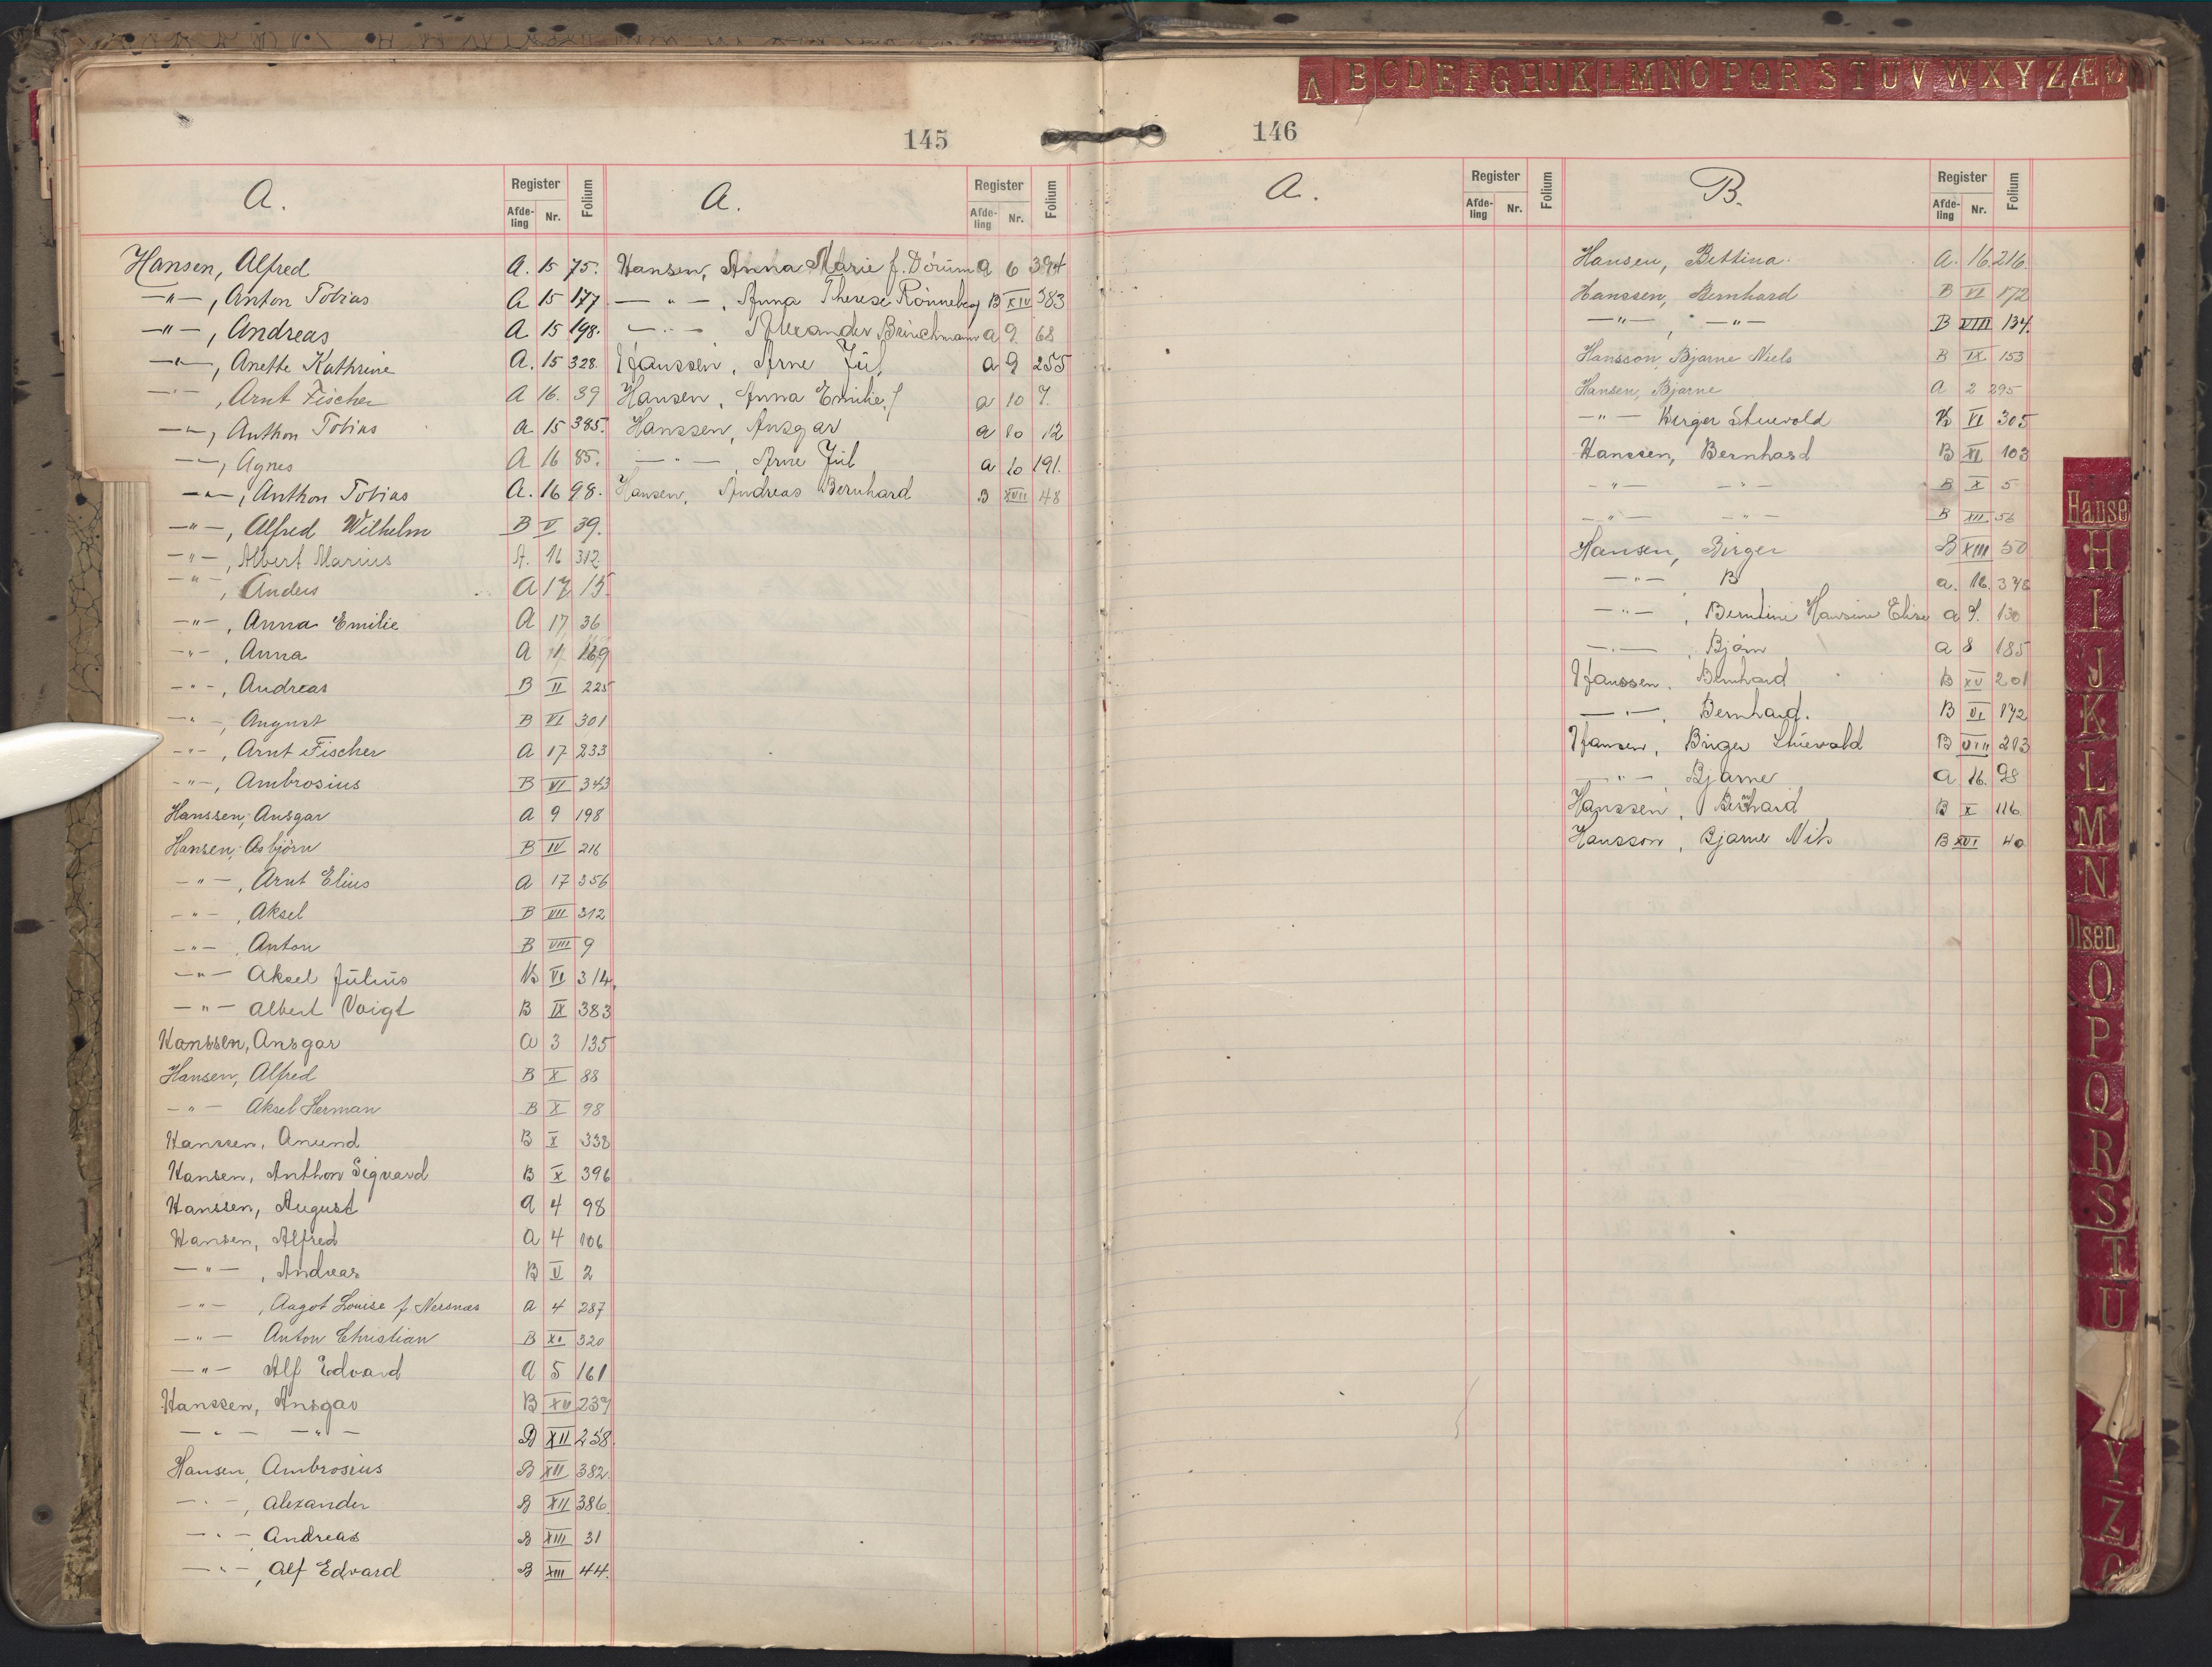 A B C D E F G H I J K L M N O P Q R S T U V W X Y Z Æ Ø
145
A. Register Afde-ling Nr. Folium
Hansen, Alfred A. 15 75.
—"—, Anton Tobias A 15 177
—"—, Andreas A 15 198.
—"—, Anette Kathrine A. 15 328.
—"—, Arnt Fischer A 16. 39
—"—, Anthon Tobias A. 15 385.
—"—, Agnes A 16 85.
—"—, Anthon Tobias A. 16 98.
—"—, Alfred Wilhelm B V 39.
—"—, Albert Marius A. 16 312.
—"—, Anders A 17 15.
—"—, Anna Emilie A 17 36
—"—, Anna A 1 169
—"—, Andreas B II 225
—"—, August B VI 301
—"—, Arnt Fischer A 17 233
—"—, Ambrosius B VI 343
Hanssen, Ansgar A 9 198
Hansen, Asbjörn B IV 216
—"—, Arnt Elius A 17 356
—"—, Aksel B VII 312
—"—, Anton B VIII 9
—"— Aksel Julius B VI 314.
—"— Albert Voigt B IX 383
Hanssen, Ansgar A 3 135
Hansen, Alfred B X 88
—"— Aksel Herman B X 98
Hanssen, Anund B X 338
Hansen, Anthon Sigvard B X 396
Hanssen, August A 4 98
Hansen, Alfred A 4 106
—"—, Andreas B V 2
—"—, Aagot Louise f. Nersnæs A 4 287
—"— Anton Christian B XI 320
—"— Alf Edvard A 5 161
Hanssen, Ansgar B 239
—"— —"— B XII 258.
Hansen, Ambrosius B XII 382.
—"—, Alexander B XII 386.
—"—, Andreas B XIII 31
—"—, Alf Edvard B XIII 44.
A. Register Afde-ling Nr. Folium
Hansen, Anna Marie f. Dörum A 6 394
—"—, Anna Therese Rönneberg B XIV 383
—"— Alexander Brinchmann A 9. 68
Hanssen, Arne Jul A 9 255
Hansen, Anna Emilie f A 10 7.
Hanssen, Ansgar A 10 12
—"—, Arne Jul A 10 191.
Hansen, Andreas Bernhard B XVII 48
146
A. Register Afde-ling Nr. Folium
B. Register Afde-ling Nr. Folium
Hansen, Bettina. A. 16. 216
Hanssen, Bernhard B VI 172
—"—, —"— B VIII 134.
Hansson, Bjarne Niels B IX. 153
Hansen, Bjarne A 2 295
—"— Birger Stuevold B VI 305
Hanssen, Bernhard B XI 103
—"— —"— B X 5
—"— —"— B XII 56
Hansen, Birger B XIII 50
—"— B A. 16. 378
—"—, Berntine Hansine Elise A 9. 130
—"—, Bjørn A 8 185
Hanssen, Bernhard B XV 201
—"—, Bernhard. B VI 172
Hansen, Birger Stuevold B VIII 213
—"— Bjarne A 16. 98
Hanssen, Bernhard B X 116
Hansson, Bjarne Nils B XVI 40
Hanse
H
I
J
K
L
M
N
Olsen
O
P
Q
R
S
T
U
Y
Z